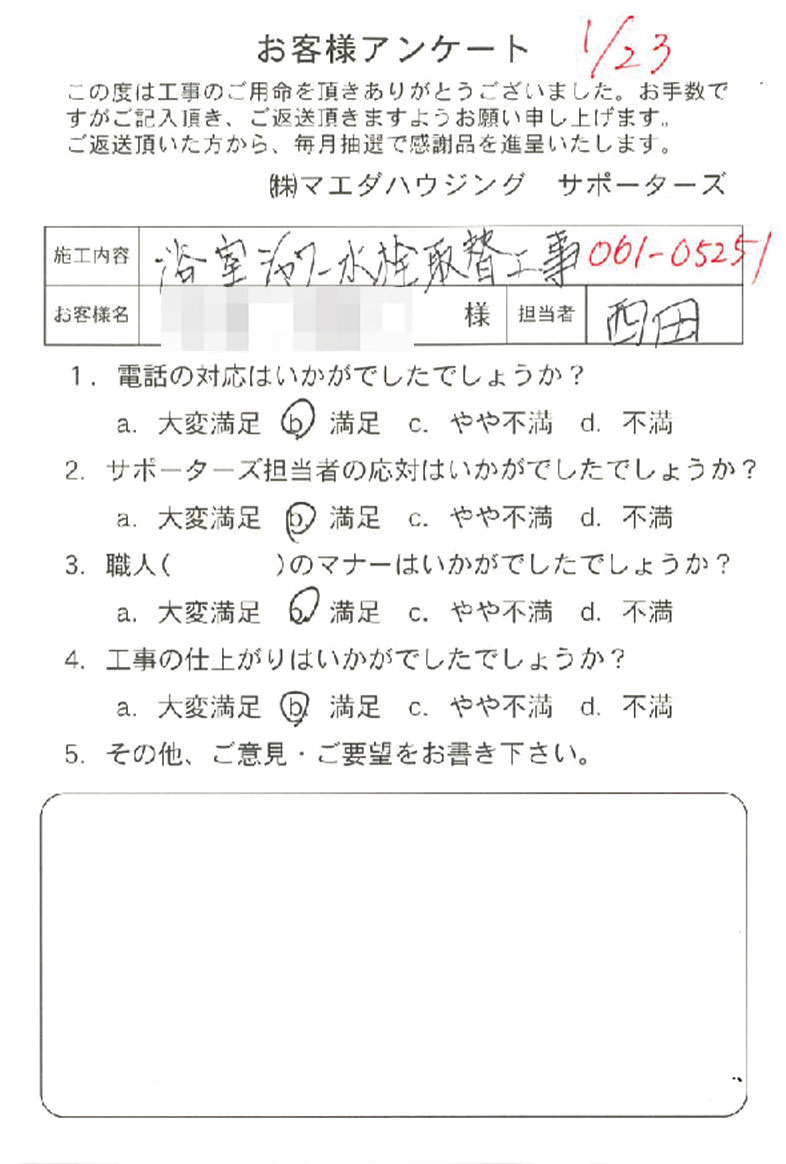 お客様アンケート 1/23
この度は工事のご用命を頂きありがとうございました。お手数で
すがご記入頂き、ご返送頂きますようお願い申し上げます。
ご返送頂いた方から、毎月抽選で感謝品を進呈いたします。
㈱マエダハウジング サポーターズ
施工内容 浴室シャワー水栓取替工事 061-05251
お客様名 様 担当者 西田
1. 電話の対応はいかがでしたでしょうか？
a. 大変満足 b. 満足 c. やや不満 d. 不満
2. サポーターズ担当者の応対はいかがでしたでしょうか？
a. 大変満足 b. 満足 c. やや不満 d. 不満
3. 職人( )のマナーはいかがでしたでしょうか？
a. 大変満足 b. 満足 c. やや不満 d. 不満
4. 工事の仕上がりはいかがでしたでしょうか？
a. 大変満足 b. 満足 c. やや不満 d. 不満
5. その他、ご意見・ご要望をお書き下さい。